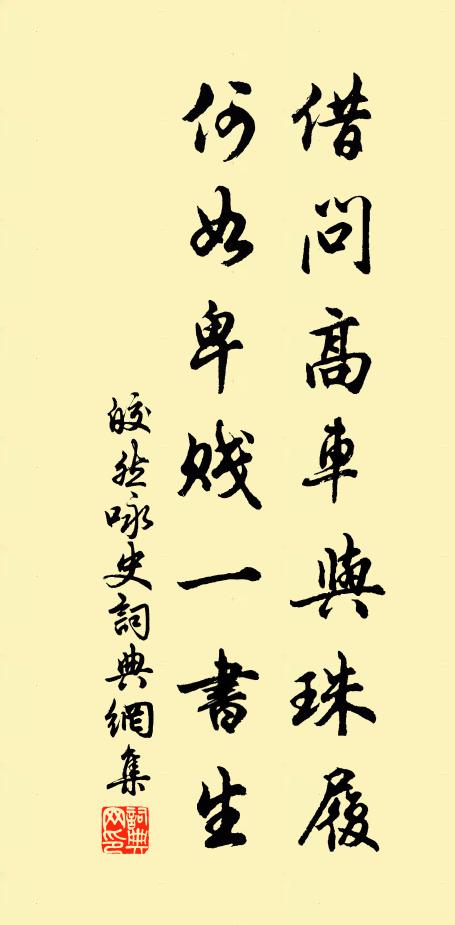 借問高車與珠履
何如卑賤一書生
皎然咏史詞典網集
詞典网印